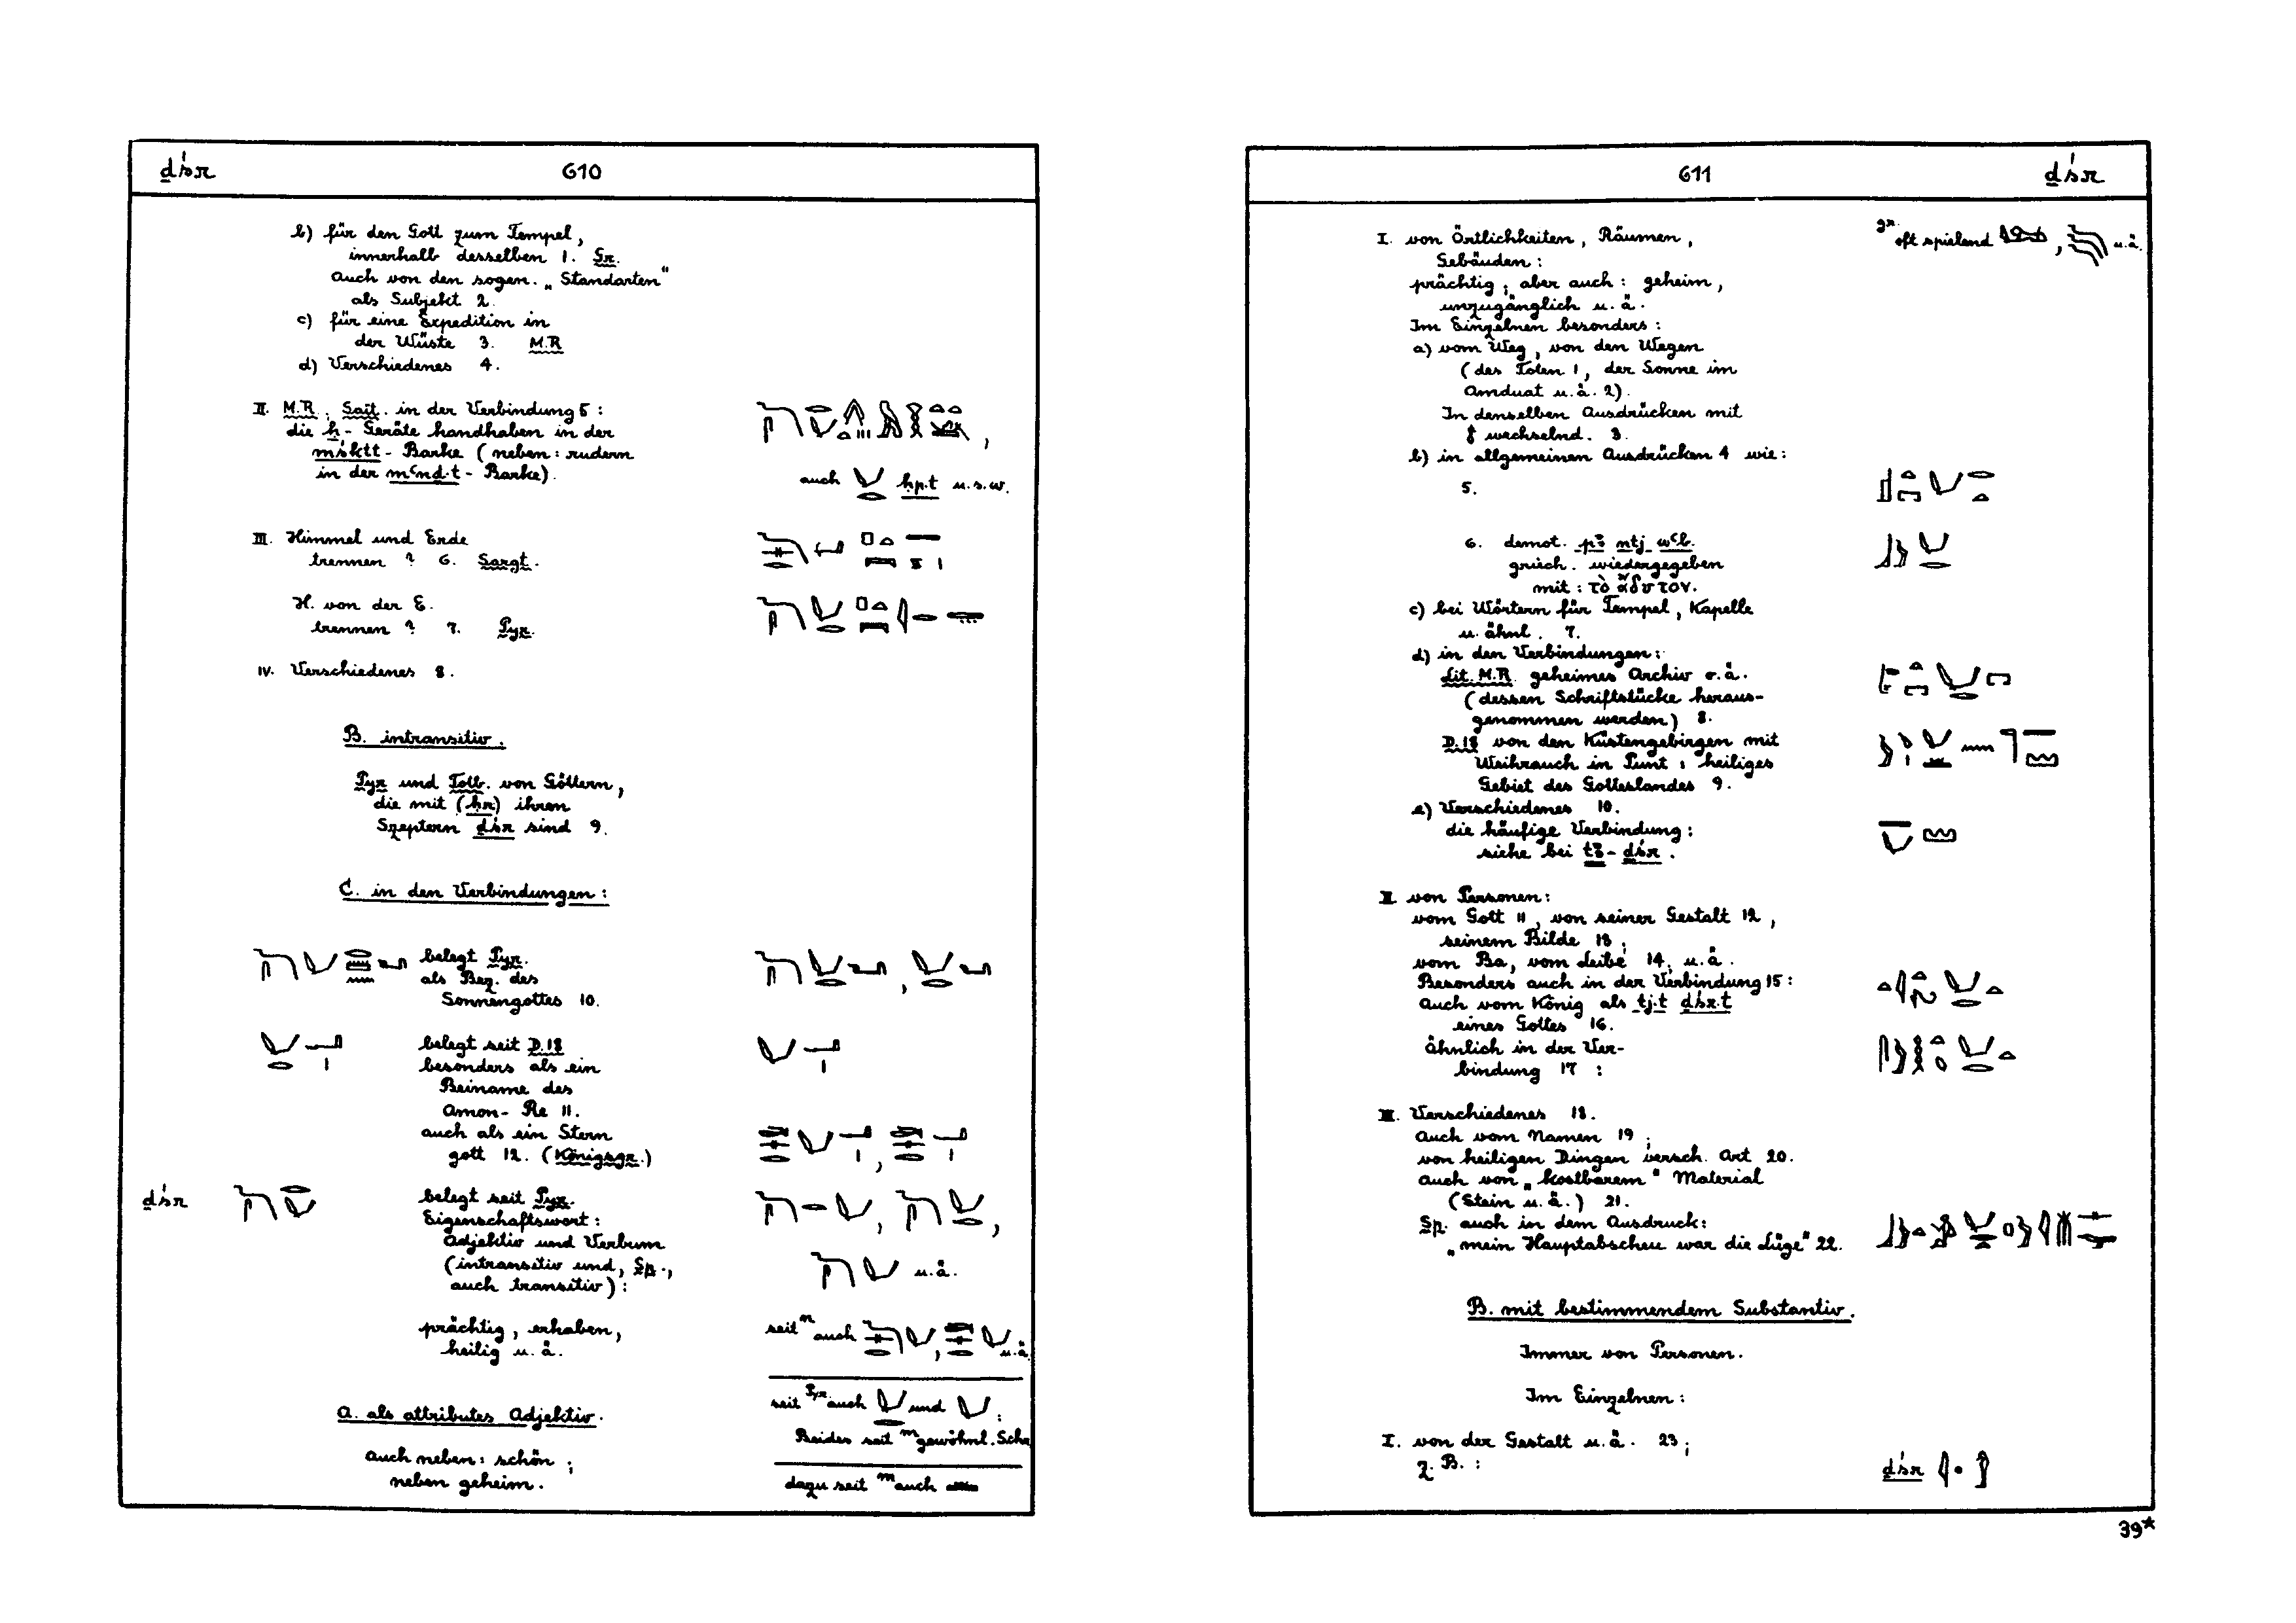 ḏśr 610
b) für den Gott zum Tempel,
innerhalb desselben 1. Gr.
Auch von den sogen. „Standarten“
als Subjekt 2.
c) für eine Expedition in
der Wüste 3. M.R
d) Verschiedenes 4.
II. M.R., Sait. in der Verbindung 5:
die ḥ-Geräte handhaben in der
mśktt-Barke (neben: rudern
in der mꜥnḏ.t-Barke).
auch ḥp.t u.s.w.
III. Himmel und Erde
trennen ? 6. Sargt.
H. von der E.
trennen ? 7. Pyr.
IV. Verschiedenes 8.
B. intransitiv.
Pyr und Totb. von Göttern,
die mit (ẖr) ihren
Szeptern ḏśr sind 9.
C. in den Verbindungen:
belegt Pyr.
als Bez. des
Sonnengottes 10.
belegt seit D.18
besonders als ein
Beiname des
Amon-Re 11.
auch als ein Stern
gott 12. (Königsgr.)
ḏśr belegt seit Pyr.
Eigenschaftswort:
Adjektiv und Verbum
(intransitiv und, Sp.,
auch transitiv):
u.ä.
prächtig, erhaben,
heilig u.ä.
seit M auch u.ä.
seit Pyr. auch und ;
Beides seit M gewöhnl. Schr
dazu seit M auch
A. als attributes Adjektiv.
Auch neben: schön;
neben geheim.
611 ḏśr
I. von Örtlichkeiten, Räumen,
Gebäuden:
gr. oft spielend , u.ä.
prächtig; aber auch: geheim,
unzugänglich u.ä.
Im Einzelnen besonders:
a) vom Weg, von den Wegen
(des Toten 1, der Sonne im
Amduat u.ä. 2).
In denselben Ausdrücken mit
wechselnd. 3.
b) in allgemeinen Ausdrücken 4 wie:
5.
6. demot. pꜣ ntj wꜥb.
griech. wiedergegeben
mit: τὸ ἄδυτον.
c) bei Wörtern für Tempel, Kapelle
u. ähnl. 7.
d) in den Verbindungen:
Lit. M.R geheimes Archiv o.ä.
(dessen Schriftstücke heraus-
genommen werden) 8.
D.18 von den Küstengebirgen mit
Weihrauch in Punt: heiliges
Gebiet des Gotteslandes 9.
e) Verschiedenes 10.
die häufige Verbindung:
siehe bei tꜣ-ḏśr.
II. von Personen:
vom Gott 11, von seiner Gestalt 12,
seinem Bilde 13;
vom Ba, vom Leibe 14, u.ä.
Besonders auch in der Verbindung 15:
Auch vom König als tj.t ḏśr.t
eines Gottes 16.
ähnlich in der Ver-
bindung 17 :
III. Verschiedenes 18.
Auch vom Namen 19;
von heiligen Dingen versch. Art 20.
Auch von „kostbarem“ Material
(Stein u.ä.) 21.
Sp. auch in dem Ausdruck:
„mein Hauptabscheu war die Lüge“ 22.
B. mit bestimmendem Substantiv.
Immer von Personen.
Im Einzelnen:
I. von der Gestalt u.ä. 23;
z.B.: ḏśr
39*